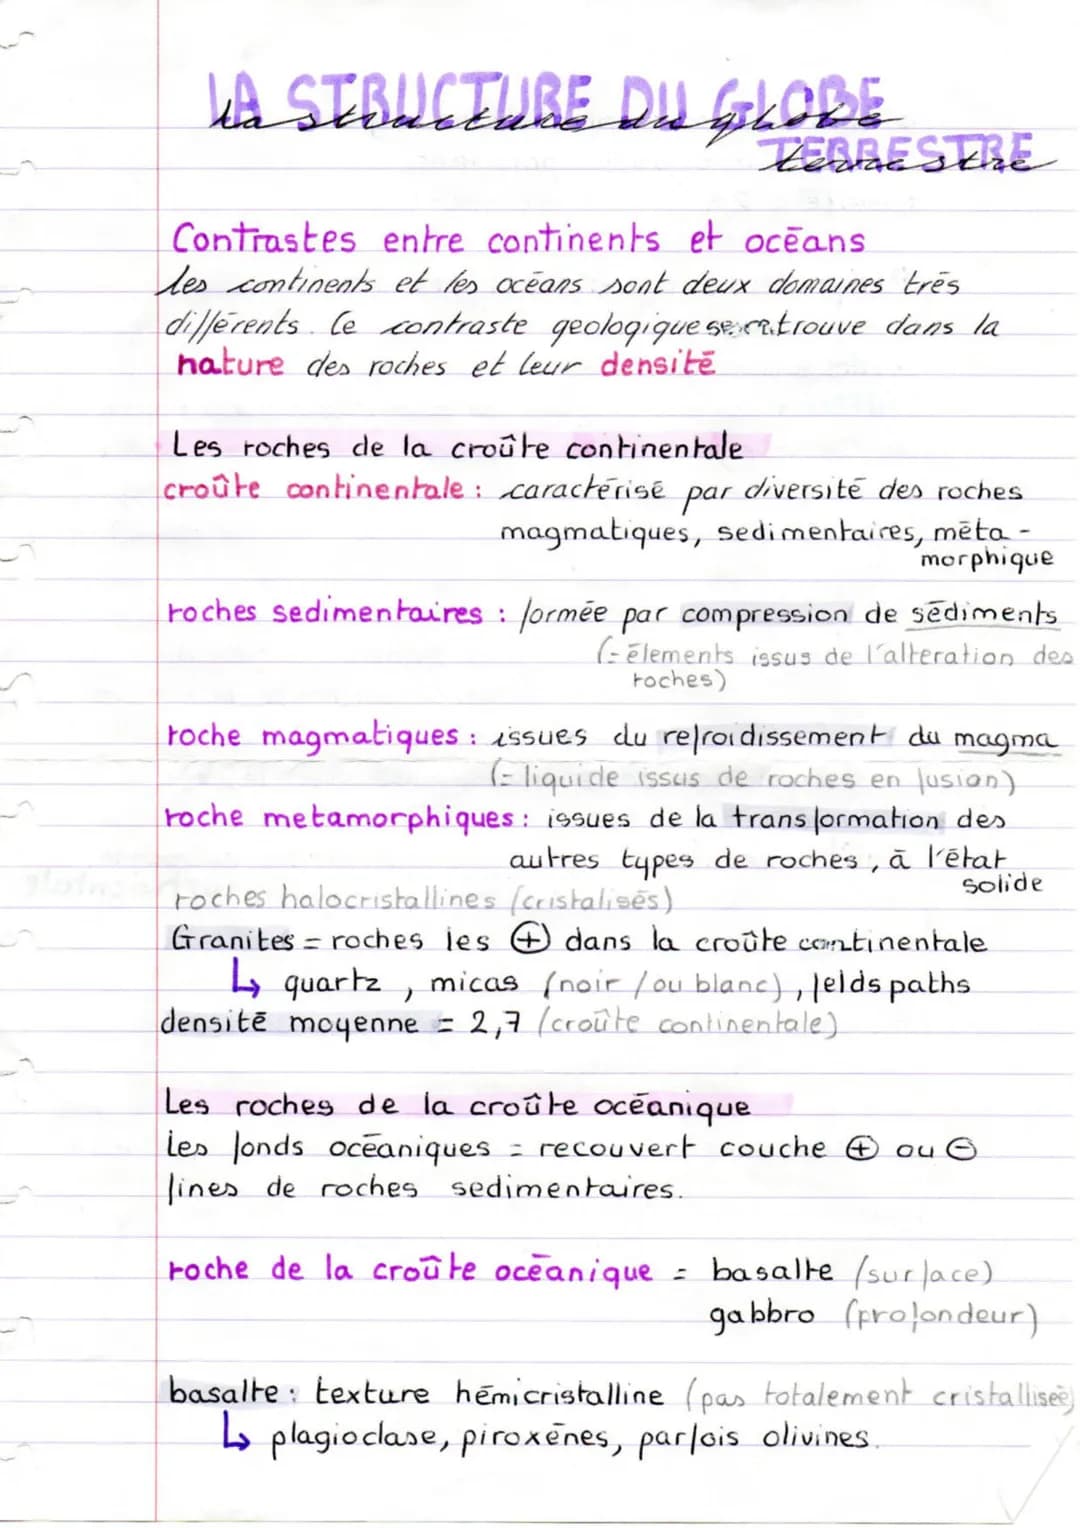 LA STRUCTURE DU GLOBE
La structure du globe
TERRESTRE
terrestre
Contrastes entre continents et océans
Les continents et les océans sont deux domaines très
différents. Ce contraste geologique se retrouve dans la
nature des roches et leur densité
Les roches de la croûte continentale
croûte continentale : caractérisé par diversité des roches
magmatiques, sedimentaires, méta-
morphique
roches sedimentaires : formée par compression de sédiments
(= élements issus de l'alteration des
roches)
roche magmatiques : issues du refroidissement du magma
(= liquide issus de roches en fusion)
roche metamorphiques : issues de la transformation des
autres types de roches, à l'état
solide
roches halocristallines (cristalisés)
Granites = roches les ⊕ dans la croûte continentale
↳ quartz, micas (noir / ou blanc), feldspaths
densité moyenne = 2,7 (croûte continentale)
Les roches de la croûte océanique
Les fonds océaniques = recouvert couche ⊕ ou ⊖
fines de roches sedimentaires.
roche de la croûte océanique = basalte (surface)
gabbro (profondeur)
basalte : texture hémicristalline (pas totalement cristallisée)
↳ plagioclase, piroxènes, parfois olivines.